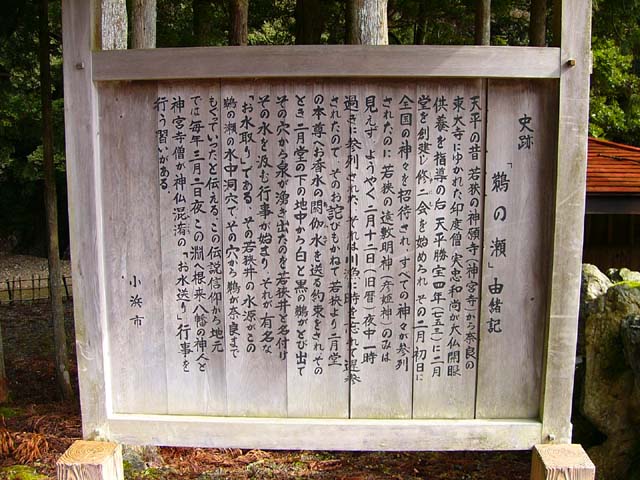 史跡 「鵜の瀬」由緒記
天平の昔 若狭の神願寺(神宮寺)から奈良の
東大寺にゆかれた印度僧 実忠和尚が大仏開眼
供養を指導の后 天平勝宝四年(七五二)に二月
堂を創建し修二会を始められ その二月初日に
全国の神々を招待され、すべての神々が参列
されたのに 若狭の遠敷明神(彦姫神)のみは
見えず ようやく二月十二日(旧暦)夜中一時
過ぎに参列された、それは川漁に時を忘れて遅参
されたので、そのお詫びもかねて若狭より二月堂
の本尊へお香水の閼伽水を送る約束をされ、その
とき二月堂の下の地中から白と黒の鵜がとび出て
その穴から泉が湧き出たのを若狭井と名付け
その水を汲む行事が始まり、それが有名な
「お水取り」である。その若狭井の水源がこの
鵜の瀬の水中洞穴で、その穴から鵜が奈良まで
もぐっていったと伝える。この伝説信仰から地元
では毎年三月二日夜 この淵へ根来八幡の神人と
神宮寺僧が神仏混淆の「お水送り」行事を
行う習いがある
小浜市